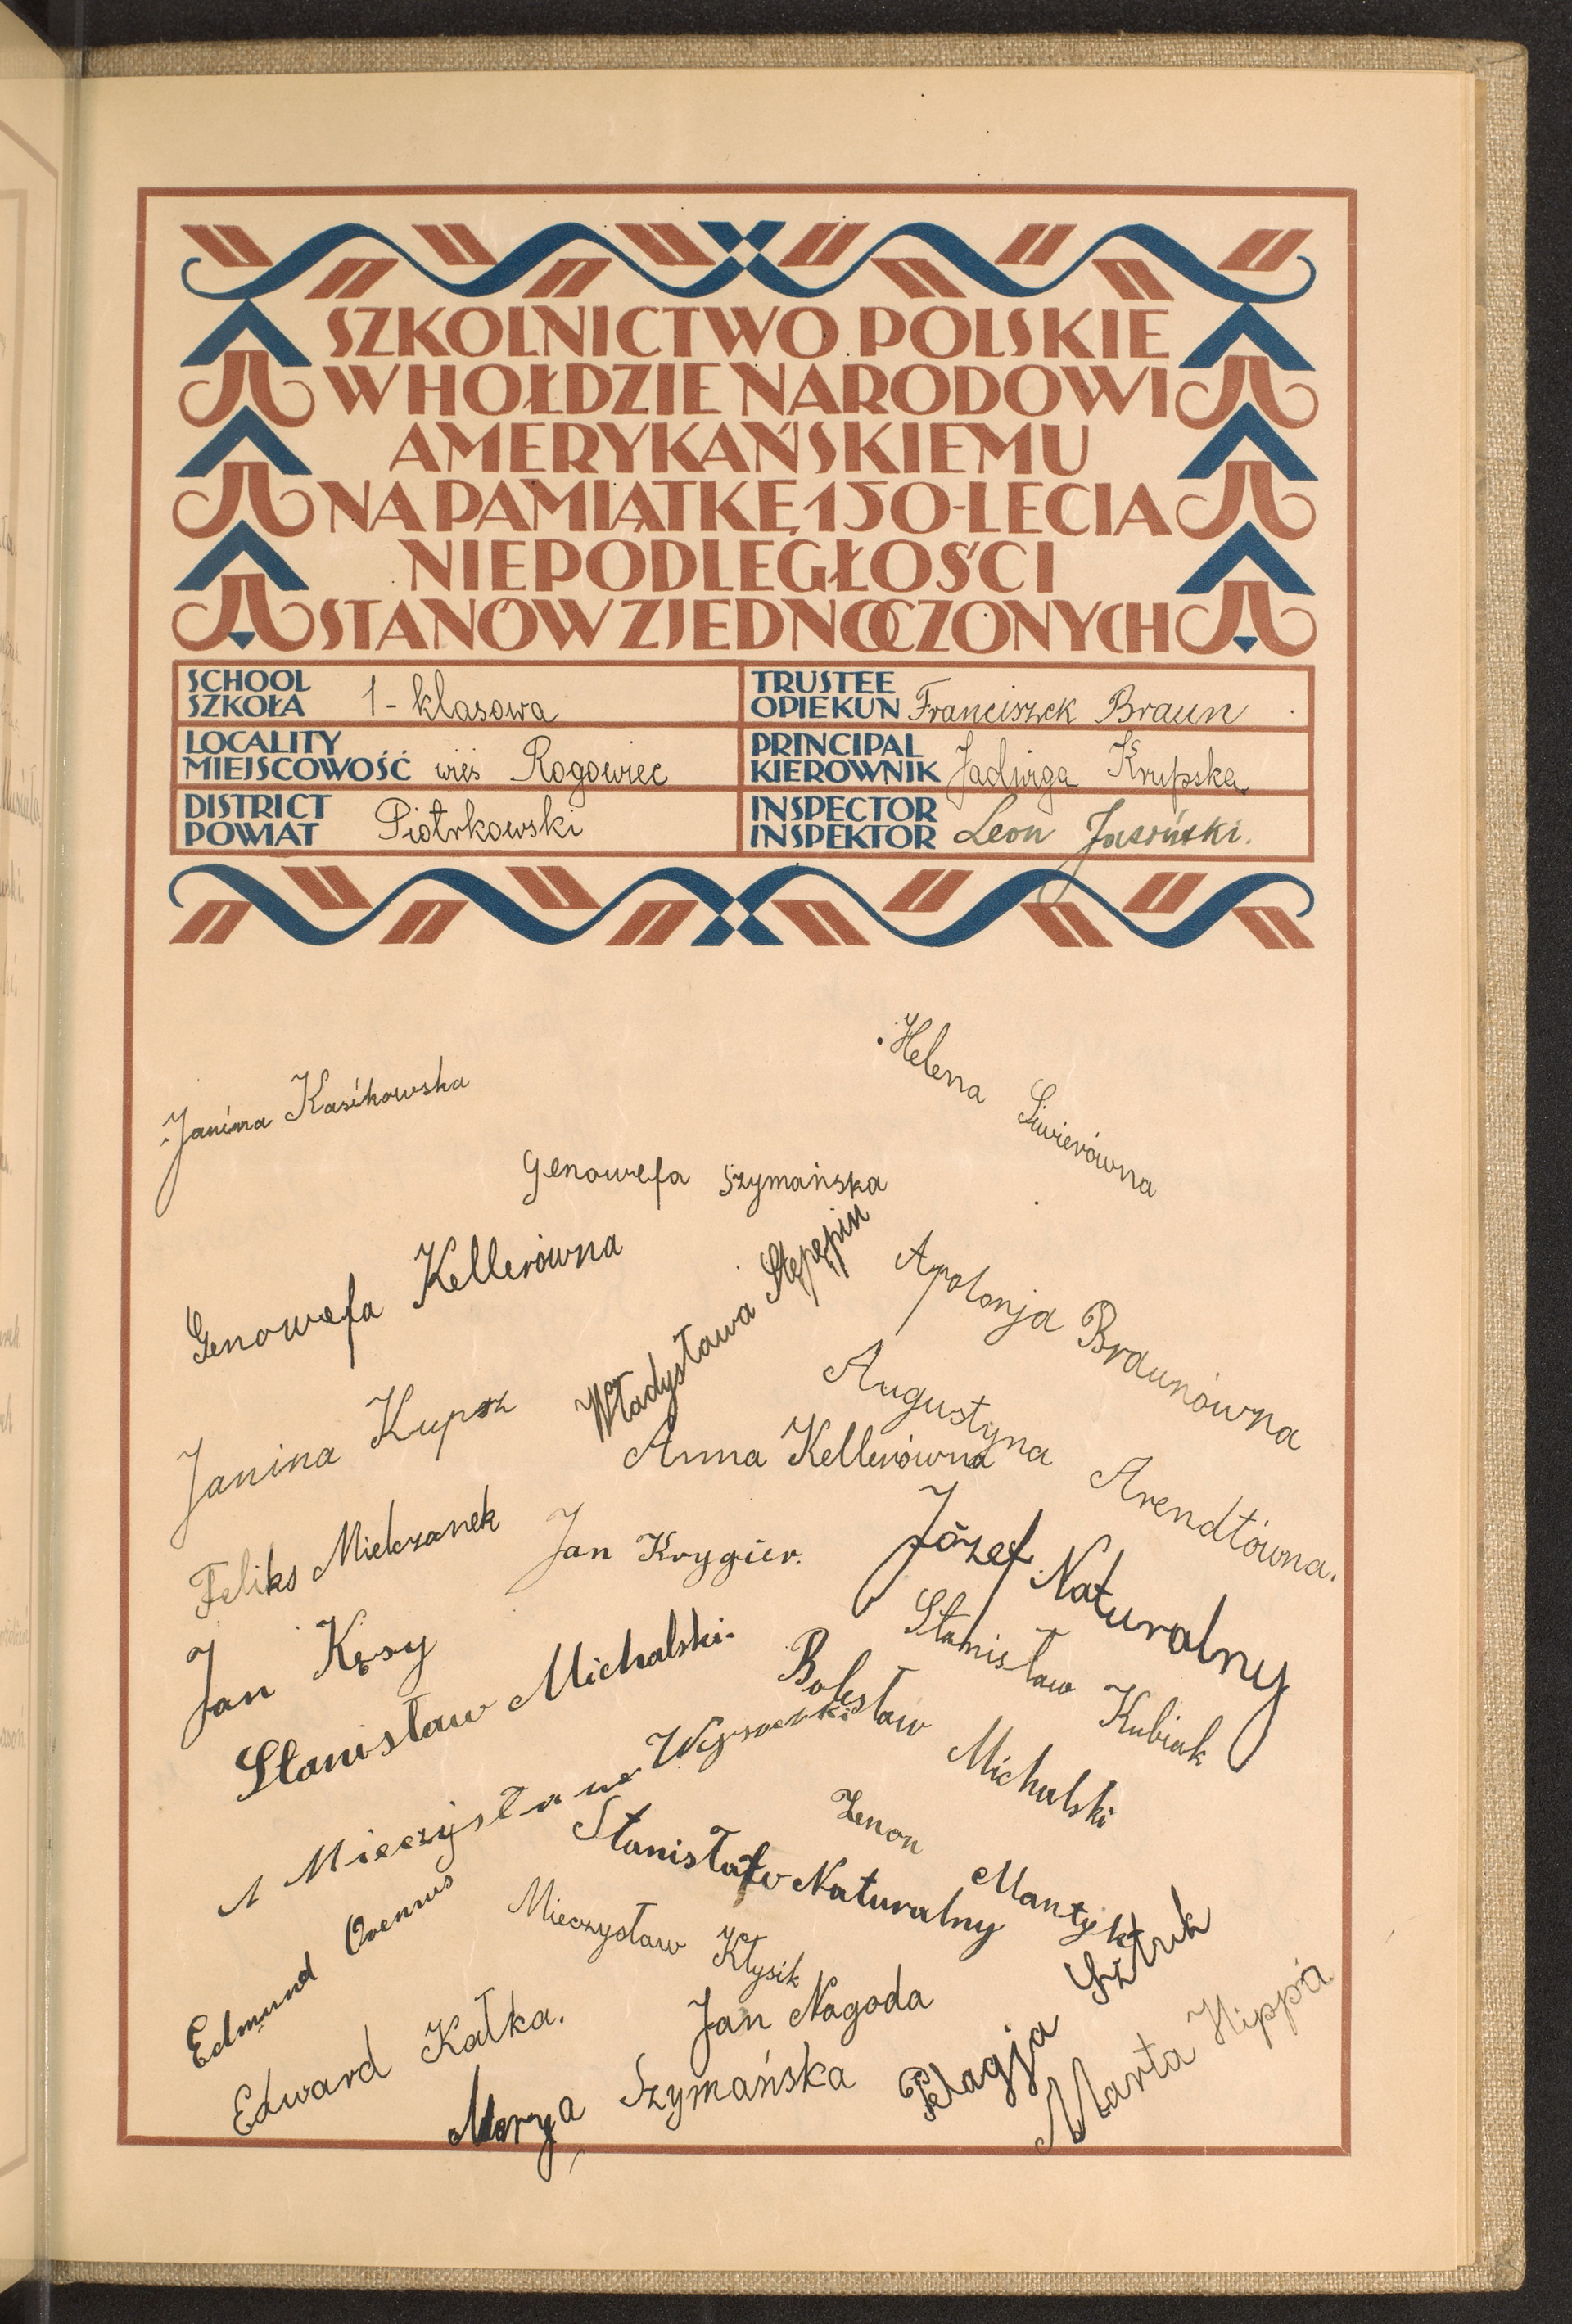 SZKOLNICTWO POLSKIE
W HOŁDZIE NARODOWI
AMERYKAŃSKIEMU
NA PAMIĄTKĘ 150-LECIA
NIEPODLEGŁOŚCI
STANÓW ZJEDNOCZONYCH
SCHOOL
SZKOŁA 1-klasowa
TRUSTEE
OPIEKUN Franciszek Braun
LOCALITY
MIEJSCOWOŚĆ wieś Rogowiec
PRINCIPAL
KIEROWNIK Jadwiga Krupska
DISTRICT
POWIAT Piotrkowski
INSPECTOR
INSPEKTOR Leon Jasiński.
Helena Siwierówna
Janina Kasikowska
Genowefa Szymańska
Genowefa Kellerówna
Władysława Stępień
Apolonja Braunówna
Janina Kupsz
Augustyna Arendtówna.
Anna Kellerówna
Feliks Mielczanek
Jan Krygier.
Józef Naturalny
Jan Kęsy
Stanisław Kubiak
Stanisław Michalski
Bolesław Michalski
Mieczysław
Zenon Mantyk
Stanisław Naturalny
Mieczysław Kłysik
Edmund
Pelagja
Jan Nagoda
Edward Kałka.
Marta Hippa
Maryja Szymańska